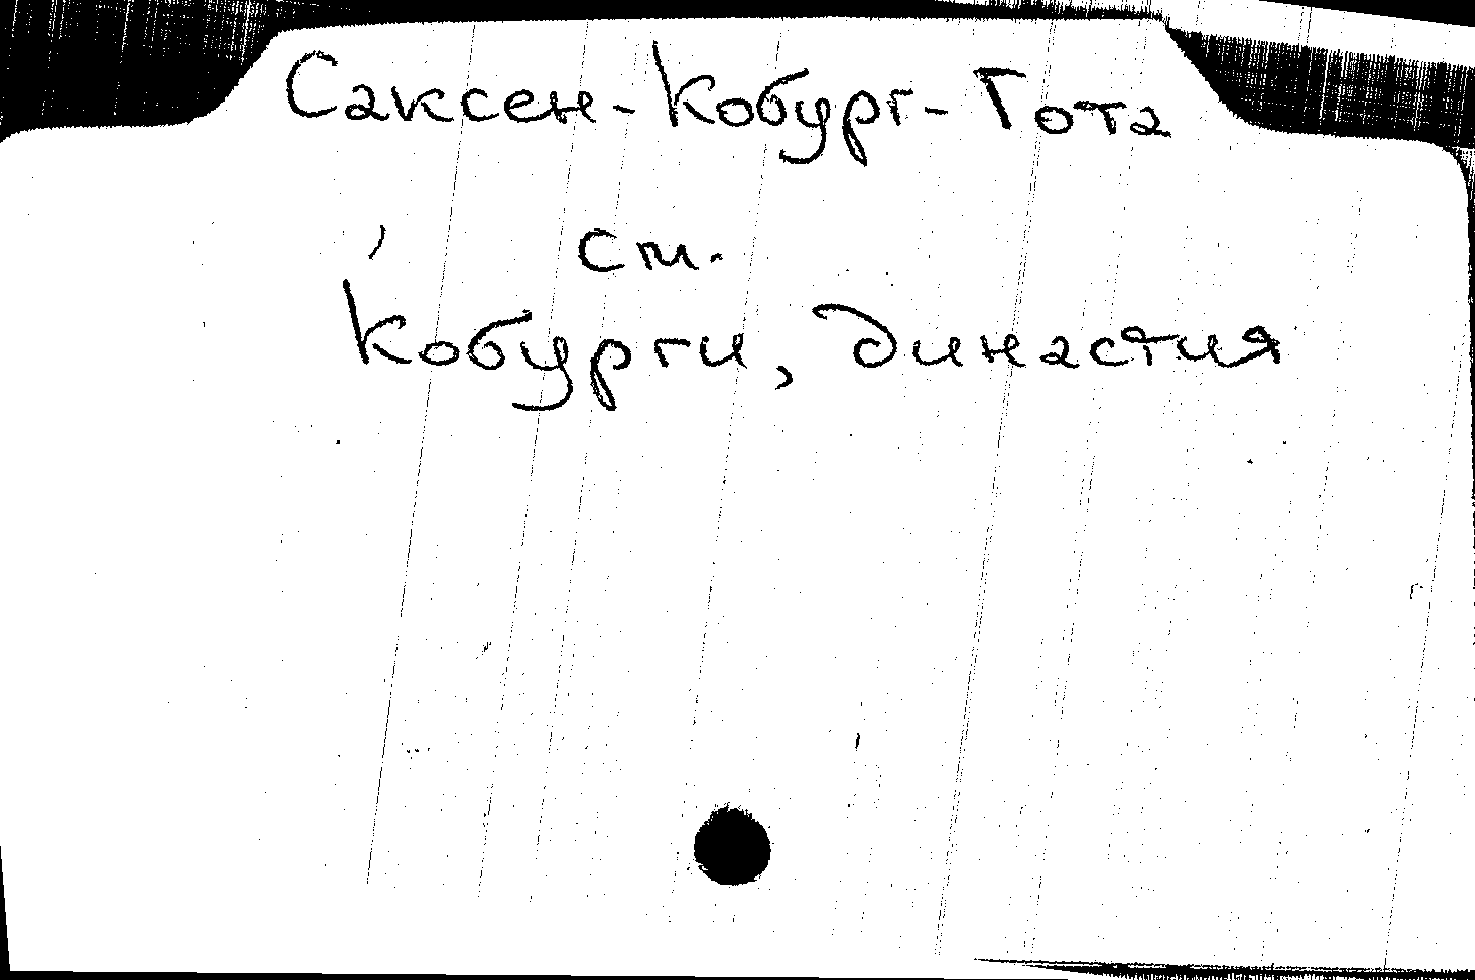 Саксен-Кобург-Гота
см.
Кобурги, династия